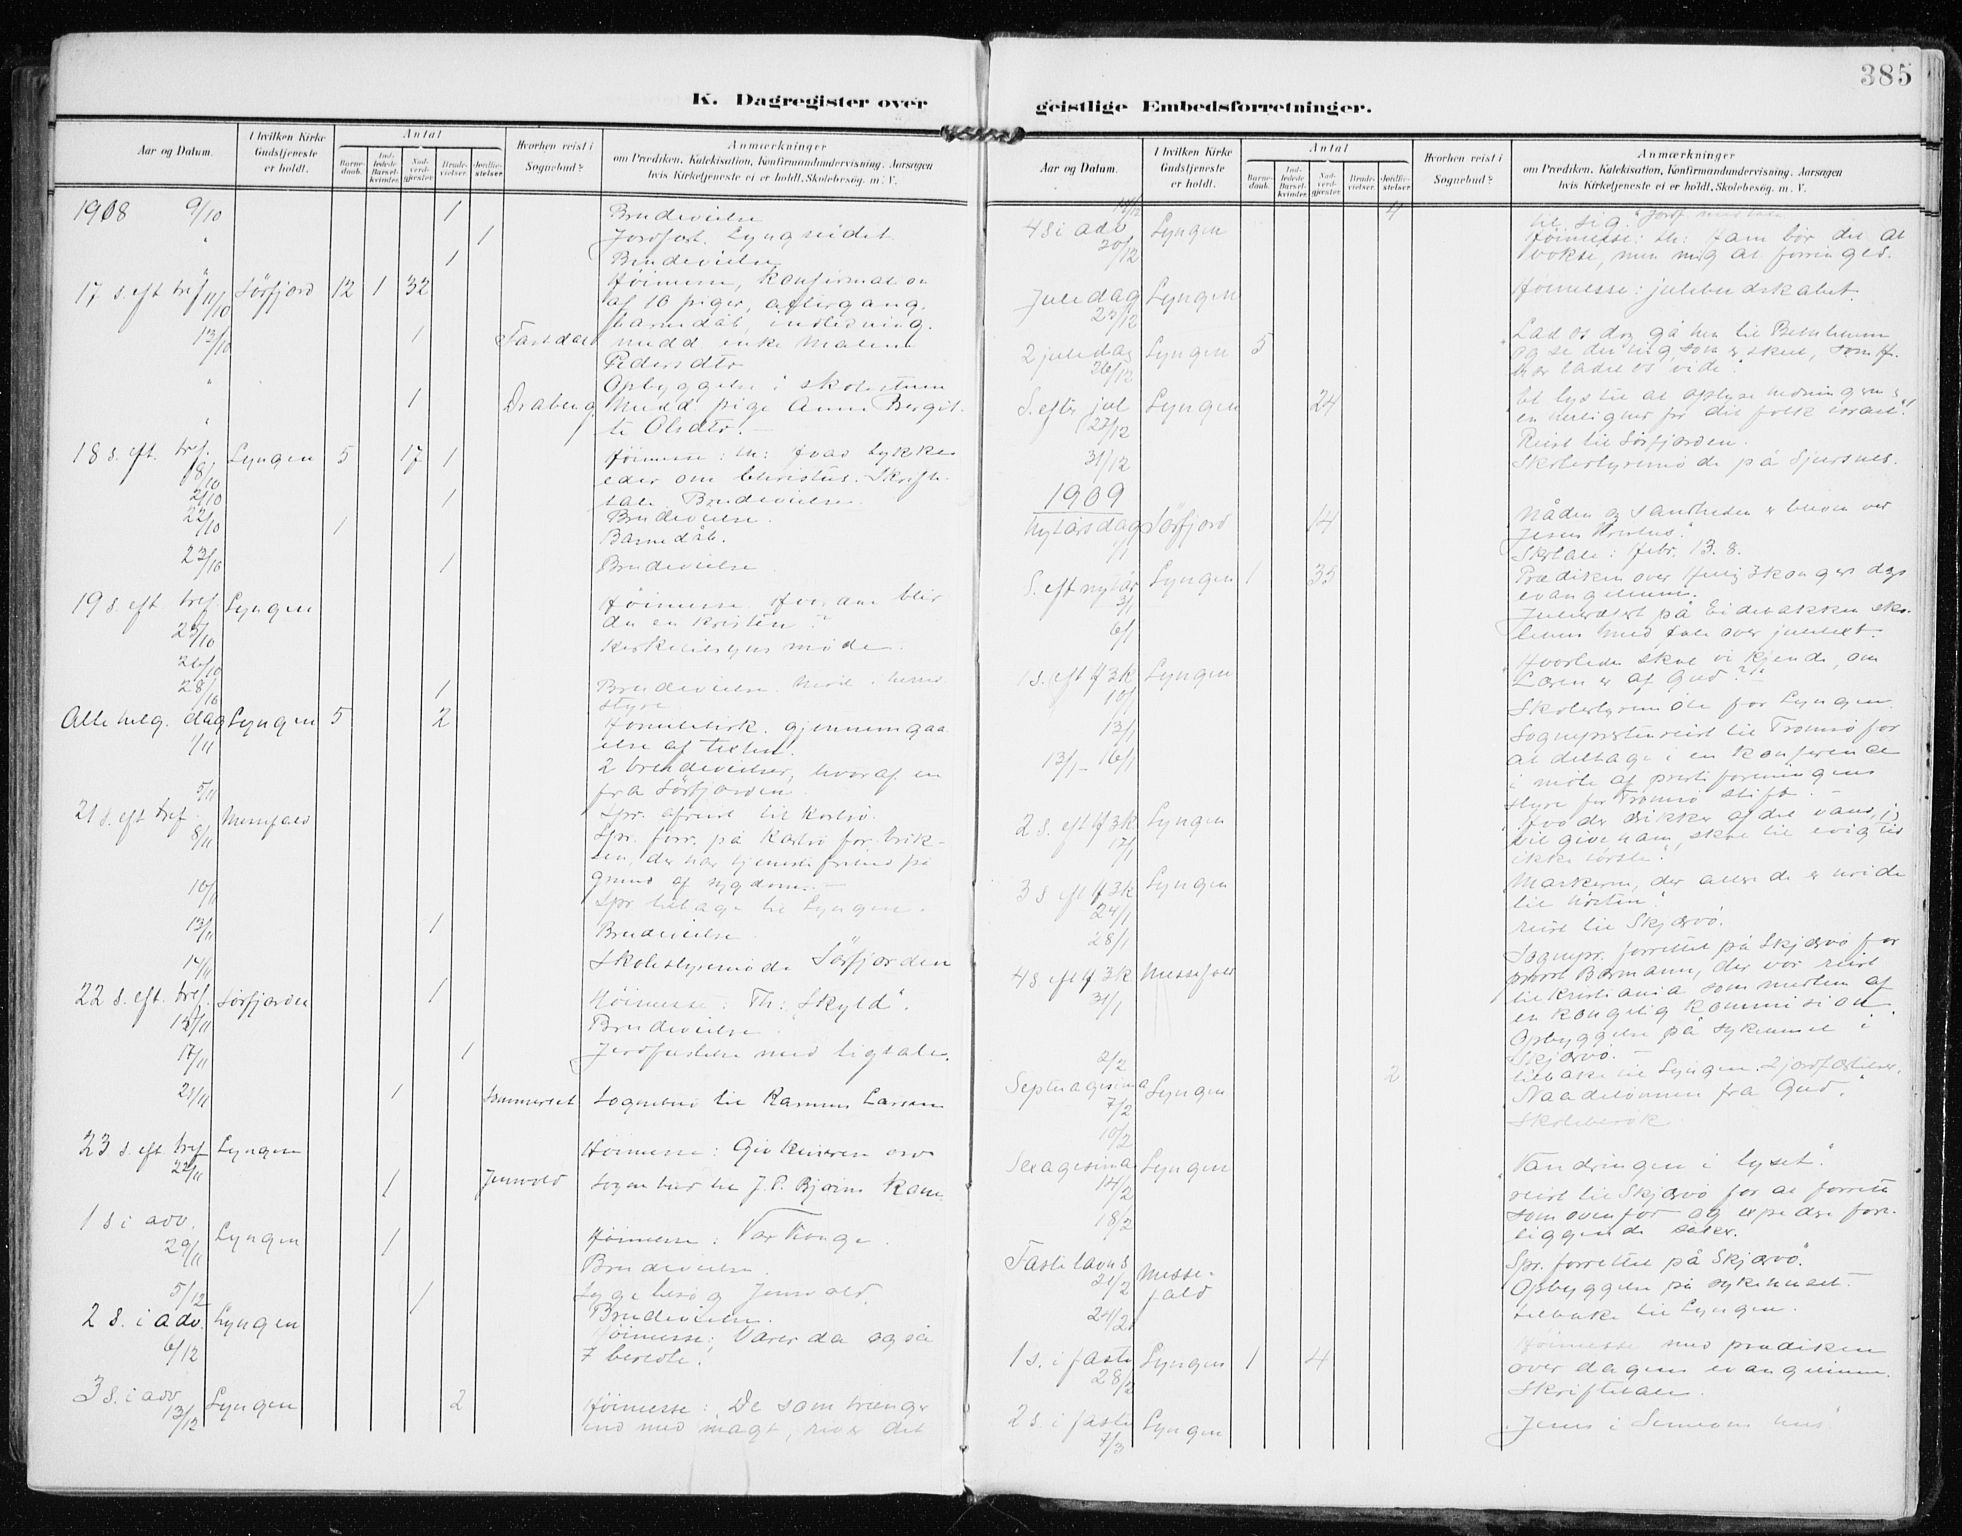 385
K. Dagregister over
Aar og Datum.
I hvilken Kirke Gudstjeneste er holdt.
Antal
Barnedaab.
Indledede Barselkvinder.
Nadverdgjester
Brudevielser
Jordfæstelser
Hvorhen reist i Sognebud?
Anmærkninger
om Prædiken, Katekisation, Konfirmandundervisning, Aarsagen
hvis Kirketjeneste ei er holdt, Skolebesøg, m. V.
1908 9/10 1 Brudevielse
" 1 Jordfæst. Lyngseidet
" 1 Brudevielse
17 s. eft tref 11/10 Sørfjord 12 1 32 Høimesse, Konfirmation
af 10 piger, altergang,
barnedåb, indledning.
13/10 1 enke
Pedersdtr
" Opbyggelse i skolestuen
" 1 pige Anne Bergit-
te Olsdtr. –
18 s. eft. tref. 18/10 Lyngen 5 17 1 Høimesse: Th: Hvad tykkes
eder om Christus. Skrifte-
tale Brudevielse.
21/10 1 Brudevielse.
22/10 1 Barnedåb.
23/10 1 Brudevielse
19 s. eft tref 25/10 Lyngen Høimesse. Hvordan blir
du en kristen?
26/10 Kirketilsyns møde.
28/10 1 Brudevielse.
styre
Alle helg. dag 1/11 Lyngen 5 2 gjennemgaa
else af texten.
2 brudevielser, hvoraf en
fra Sørfjorden
5/11 Spr. afreist til Karlsø.
21 s. eft tref. 8/11 Messefald Spr. forr. på Karlsø for Erik-
sen, der har tjenestefrihed på
grund af sygdom. –
10/11 Spr tilbage til Lyngen.
13/11 1 Brudevielse
14/11 Skolestyremøde Sørfjorden
22 s. eft. tref. 15/11 Sørfjorden 1 Høimesse. Th: "Skyld".
Brudevielse.
17/11 1 Jordfæstelse med ligtale.
21/11 1 Sommerset Sognebud til Rasmus Larsen
23 s. eft. tref 22/11 Lyngen Høimesse: Giv Keiseren osv
1 Jensvold Sognebud til J. P. Bjørns kone
1 s i adv. 29/11 Lyngen 1 Høimesse: Vor Konge.
Brudevielse.
Sygebesøg Jensvold.
5/12 1 Brudevielse
2 s. i adv. 6/12 Lyngen Høimesse: Værer da også
I beredte.
3 s. i adv 13/12 Lyngen 2 Høimesse: De som trænger
ind med magt, river det
geistlige Embedsforretninger.
Aar og Datum.
I hvilken Kirke Gudstjeneste er holdt.
Antal
Barnedaab.
Indledede Barselkvinder.
Nadverdgjester
Brudevielser
Jordfæstelser
Hvorhen reist i Sognebud?
Anmærkninger
om Prædiken, Katekisation, Konfirmandundervisning, Aarsagen
hvis Kirketjeneste ei er holdt, Skolebesøg, m. V.
14/12 4 til sig." Jordf. med tale
4 s i adv 20/12 Lyngen Høimesse: th: Ham bør det at
vokse, men mig at forringes.
Juledag 25/12 Lyngen Høimesse: julebudskabet.
2 juledag 26/12 Lyngen 5 "Lad os dog gå hen til Betlehem
og se den ting, som er skeet, som H.
har ladet os vide".
S. eft. jul 27/12 Lyngen 24 "Et lys til at oplyse hedningerne
en herlighed for dit folk Israel".
Reist til Sørfjorden.
31/12 Skolestyremøde på Sjursnes.
1909
Nytårsdag 1/1 Sørfjord 14 "Nåden og sandheden er bleven ved
Jesus Kristus".
Skrtale: Hebr. 13. 8.
S. eft nytår 3/1 Lyngen 1 35 Prædiken over Hellig 3 konger dags
evangelium.
6/1 Juletræfest på Eidebakken sko-
lehus med tale over juletext.
1 s. eft H 3 k 10/1 Lyngen "Hvorledes skal vi kjende, om
Læren er af Gud?"
13/1 Skolestyremøte for Lyngen.
13/1 – 16/1 Sognepræsten reist til Tromsø for
at deltage i en konference
i møte af presteforeningens
styre for Tromsø stift. –
2 s. eft H 3 k 17/1 Lyngen "Hvo der drikker af det vand, jeg
vil give ham, skal til evig tid
ikke tørste".
3 s eft H 3 k 24/1 Lyngen Markerne, der allerede er hvide
til høsten".
28/1 reist til Skjærvø.
4 s eft H 3 k 31/1 Messefald Sognepr. forrettet på Skjærvø for
prost Bormann, der var reist
til Kristiania som medlem af
en kongelig kommission.
Opbyggelse på sykehuset i
Skjærvø. –
2/2 2 tilbake til Lyngen. 2 jordfæstelser.
Septuagesima 7/2 Lyngen "Naadelønnen fra Gud".
10/2 Skolebesøk.
Sexagesima 14/2 Lyngen "Vandringen i lyset".
18/2 reist til Skjærvø for at forrette
som ovenfor og expedere fore-
liggende saker.
Fastelavns 21/2 Messe-
fald Spr. forrettet på Skjærvø.
Opbyggelse på sykehuset.
24/2 tilbake til Lyngen.
1 s. i faste 28/2 Lyngen 1 4 Høimesse med prædiken
over dagens evangelium.
Skriftetale.
2 s. i faste 7/3 Lyngen "Jesus i Simeons hus"